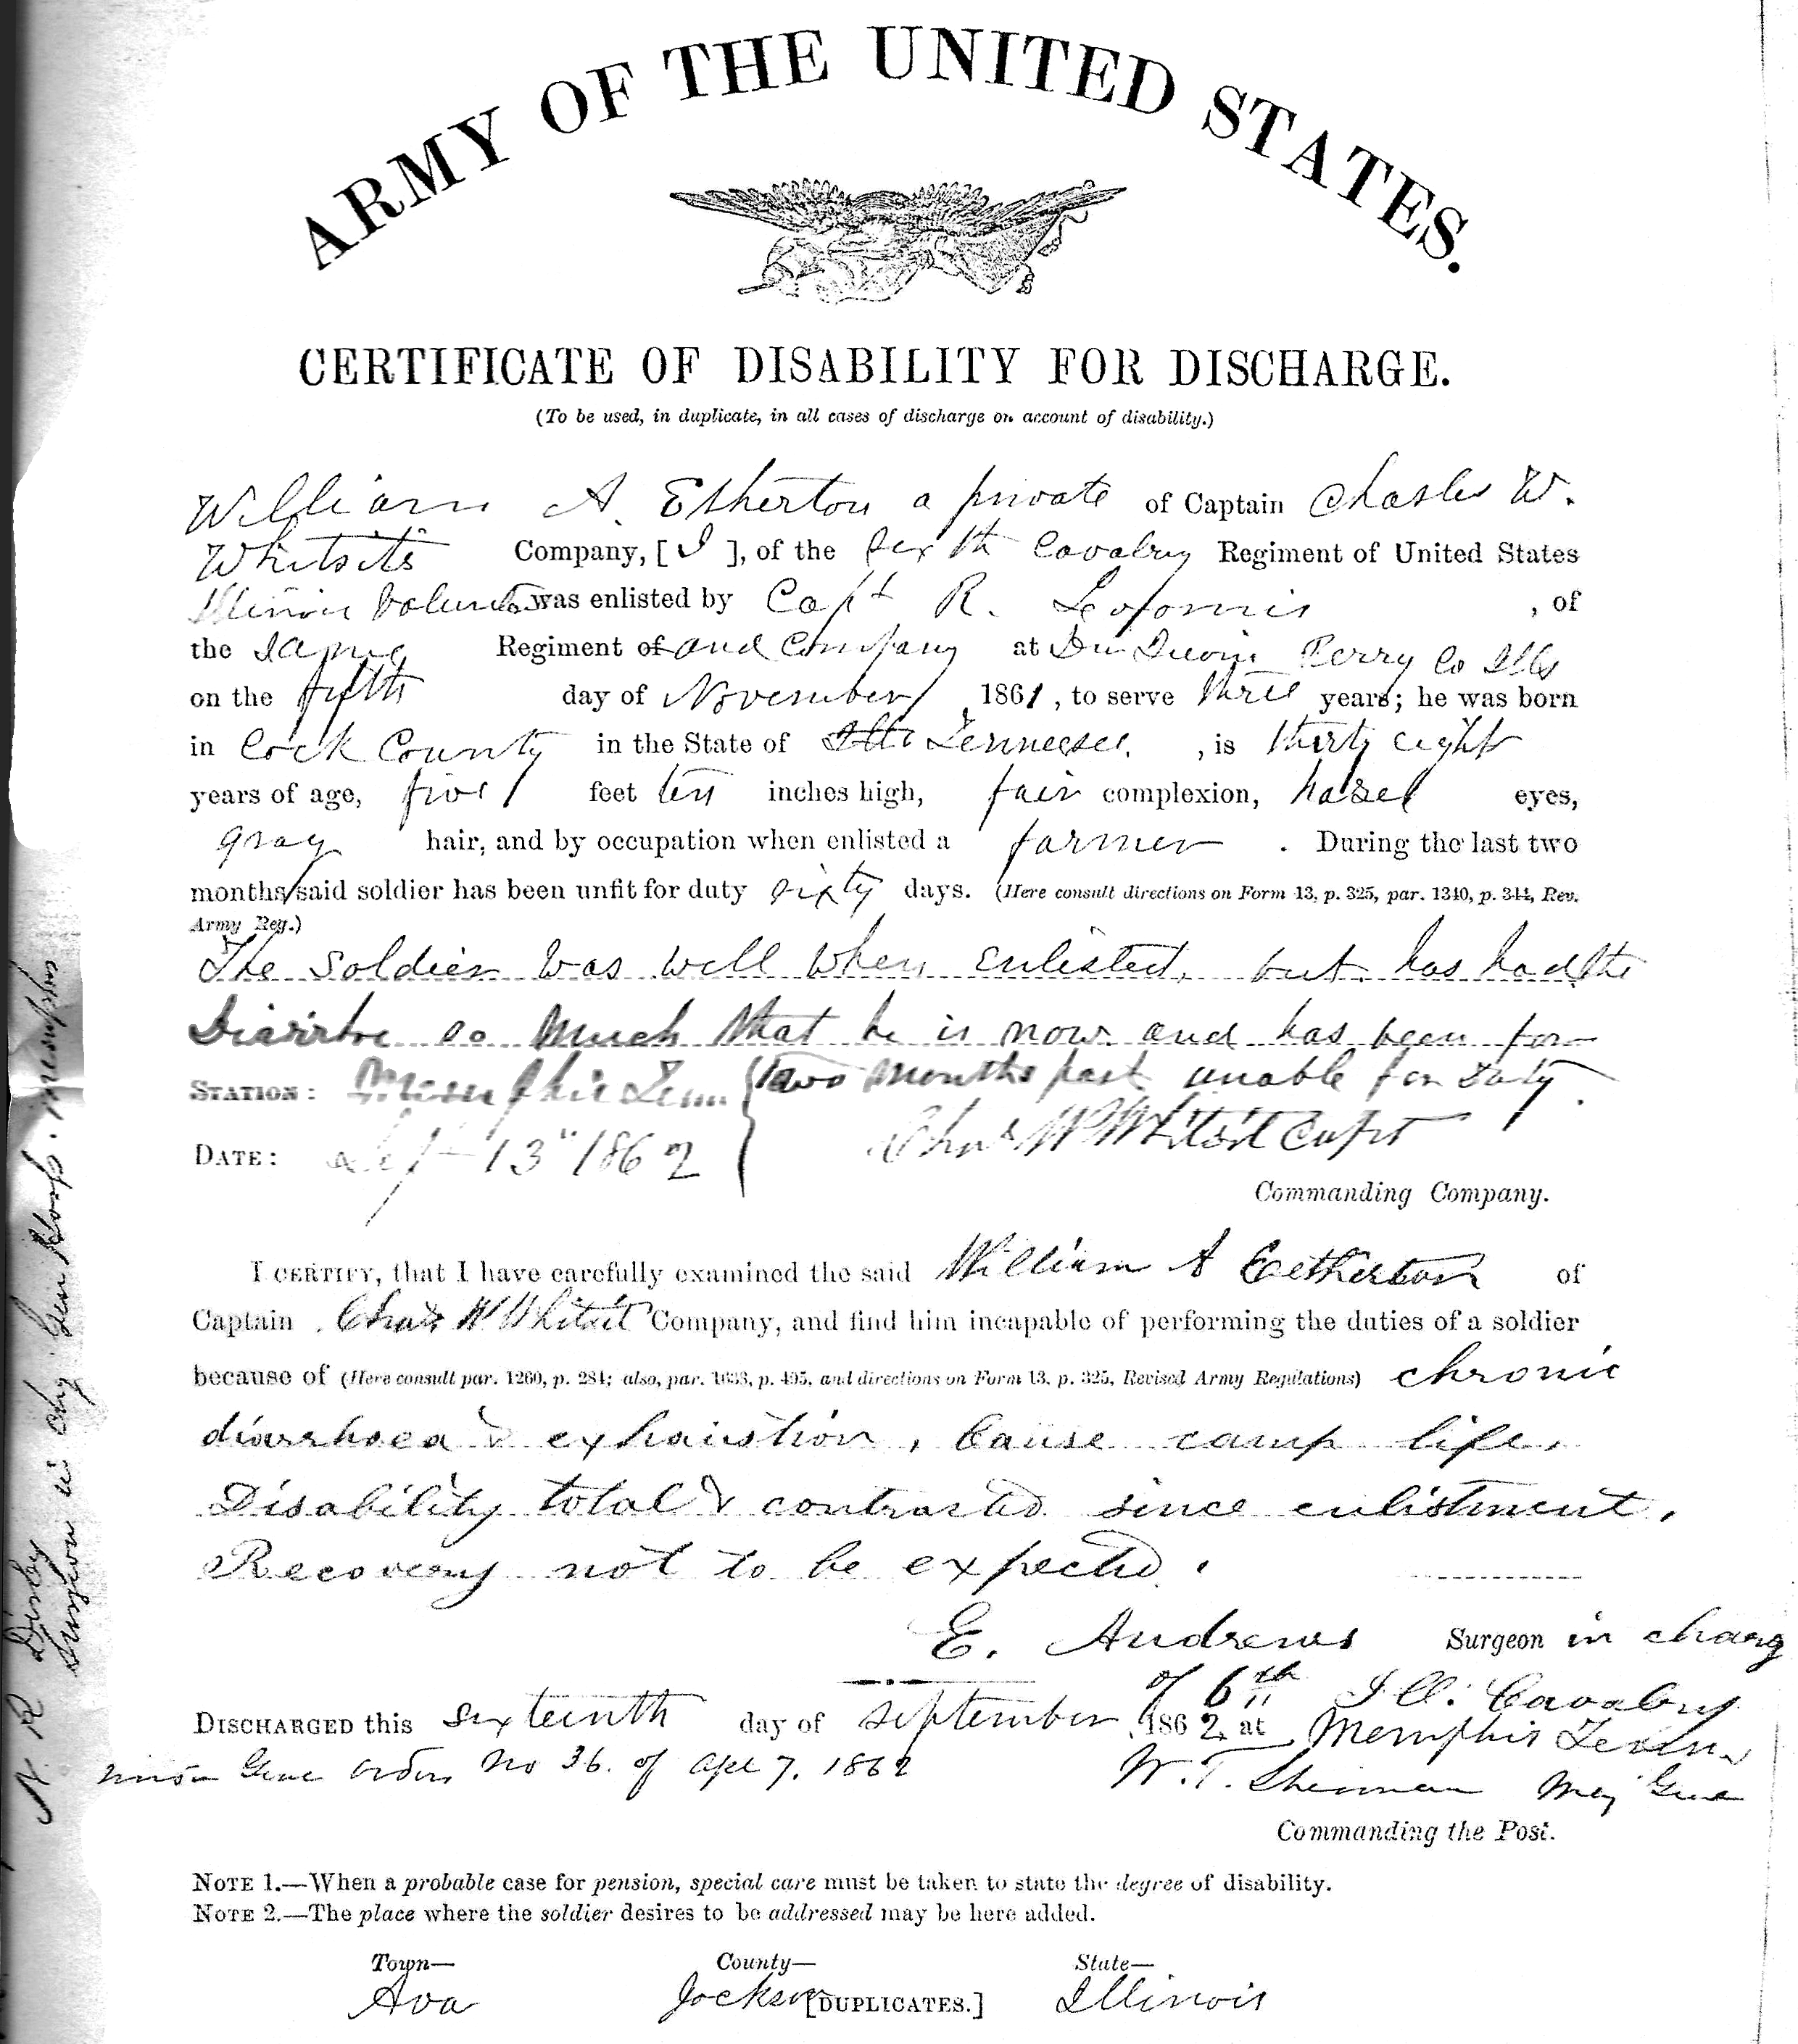 ARMY OF THE UNITED STATES.
CERTIFICATE OF DISABILITY FOR DISCHARGE.
(To be used, in duplicate, in all cases of discharge on account of disability.)
William A. Etherton a private of Captain Charles W.
Whitsits Company, [I], of the Sixth Cavalry Regiment of United States
Illinois Volunteers was enlisted by Capt R. Loomis, of
the same Regiment of and Company at Du Quoin Perry Co Ills
on the fifth day of November 1861, to serve three years; he was born
in Cock County in the State of Ills Tennessee, is thirty eight
years of age, five feet ten inches high, fair complexion, hazel eyes,
gray hair, and by occupation when enlisted a farmer. During the last two
months said soldier has been unfit for duty sixty days. (Here consult directions on Form 13, p. 325, par. 1340, p. 344, Rev.
Army Reg.)
The soldier was well when enlisted, but has had the
Diarrhe so much that he is now and has been for
STATION: Memphis Tenn. two months past unable for duty.
DATE: Sept 13" 1862 Chas W Whitsit Capt
Commanding Company.
I CERTIFY, that I have carefully examined the said William A Eetherton of
Captain Chas W Whitsit Company, and find him incapable of performing the duties of a soldier
because of (Here consult par. 1260, p. 284; also, par. 1633, p. 495, and directions on Form 13, p. 325, Revised Army Regulations) chronic
diarrhoea & exhaustion, Cause camp life,
Disability total & contracted since enlistment,
Recovery not to be expected.
E. Andrews Surgeon in charg
of 6th Ill. Cavalry
DISCHARGED this sixteenth day of September 1862, at Memphis Tenn.
Gene Orders No 36. of Apl 7. 1862 W. T. Sherman Maj Gene
Commanding the Post.
NOTE 1.—When a probable case for pension, special care must be taken to state the degree of disability.
NOTE 2.—The place where the soldier desires to be addressed may be here added.
Town— County— State—
Ava Jackson [DUPLICATES.] Illinois
N R Dirby
Surgeon in chg Gen Hosp. Memphis